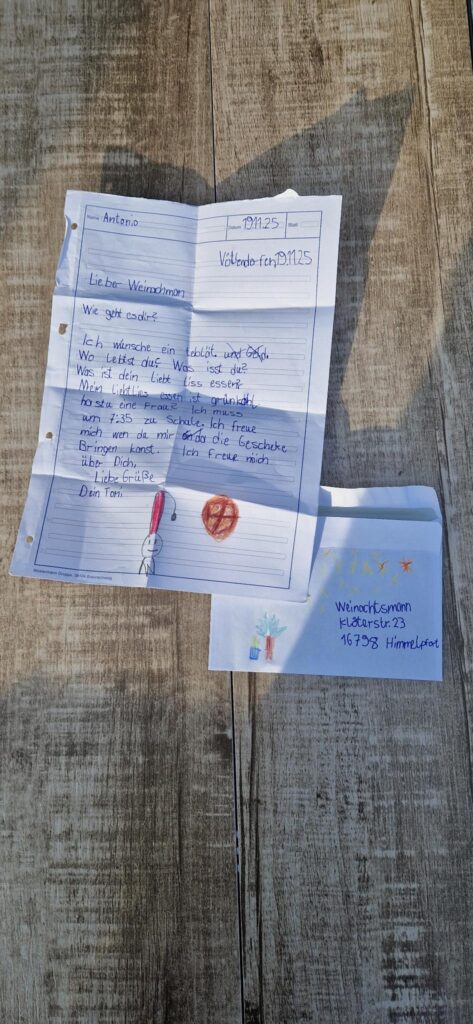 Name Antonio
Datum 19.11.25
Blatt
19.11.25
Lieber Weinachman
Wie geht es dir?
Ich wünsche ein teblöt. und Geld.
Wo lebst du? Was isst du?
Was ist dein Liebt liss essen?
Mein liebtlies essen ist grünkohl
hast du eine Frau? Ich muss
um 7:35 zu Schule. Ich freue
mich wen du mir die Gescheke
Bringen kanst. Ich Freue mich
über Dich,
Liebe Grüße
Dein Toni
Weinachtsmann
Klöterstr. 23
16798 Himmelpfort